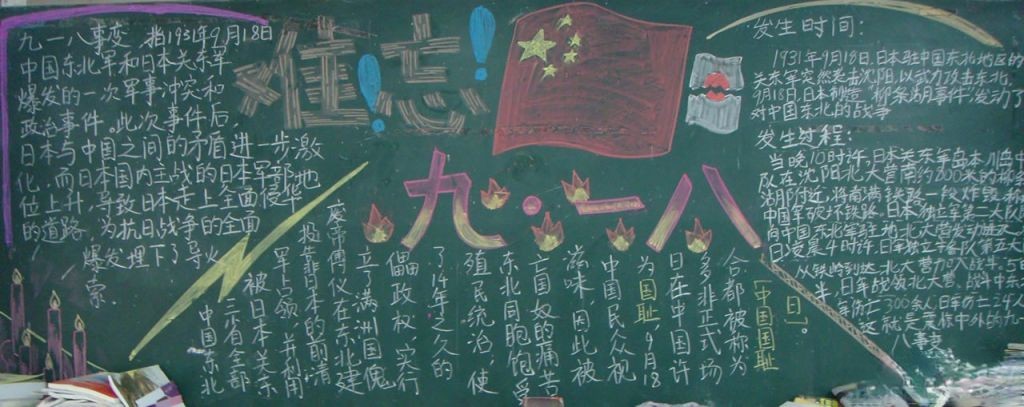 九一八事变 指1931年9月18日
中国东北军和日本关东军
爆发的一次军事冲突和
政治事件。此次事件后,
日本与中国之间的矛盾进一步激
化,而日本国内主战的日本军部地
位上升,导致日本走上全面侵华
的道路,为抗日战争的全面
爆发埋下了导火
索。
勿忘!
九·一八
发生时间:
1931年9月18日,日本驻中国东北地区的
关东军突然袭击沈阳,以武力攻击东北,
9月18日日本制造"柳条湖事件"发动了
对中国东北的战争
发生过程:
当晚10时许,日本关东军岛本
队在沈阳北大营南约800米的
湖附近,将南满铁路一段炸毁
中国军破坏铁路。日本独立
向中国东北军驻地北大营发动进攻
4时许,日军独立守备队第五大
从铁岭到达北大营加入战斗。
半,日军战领北大营。战斗中
300余人,日军伤亡24人
就是震惊中外的九一
八事变
「中国国耻
日」。
合都被称为
多非正式场
日在中国许
为国耻,9月18
中国民众视
滋味,因此被
亡国奴的痛苦
东北同胞饱受
殖民统治,使
傀儡政权,实行
了14年之久的
立了满洲国傀
废帝溥仪在东北建
扶辈日本的前清
军占领,并利用
被日本关东
三省全部
中国东北